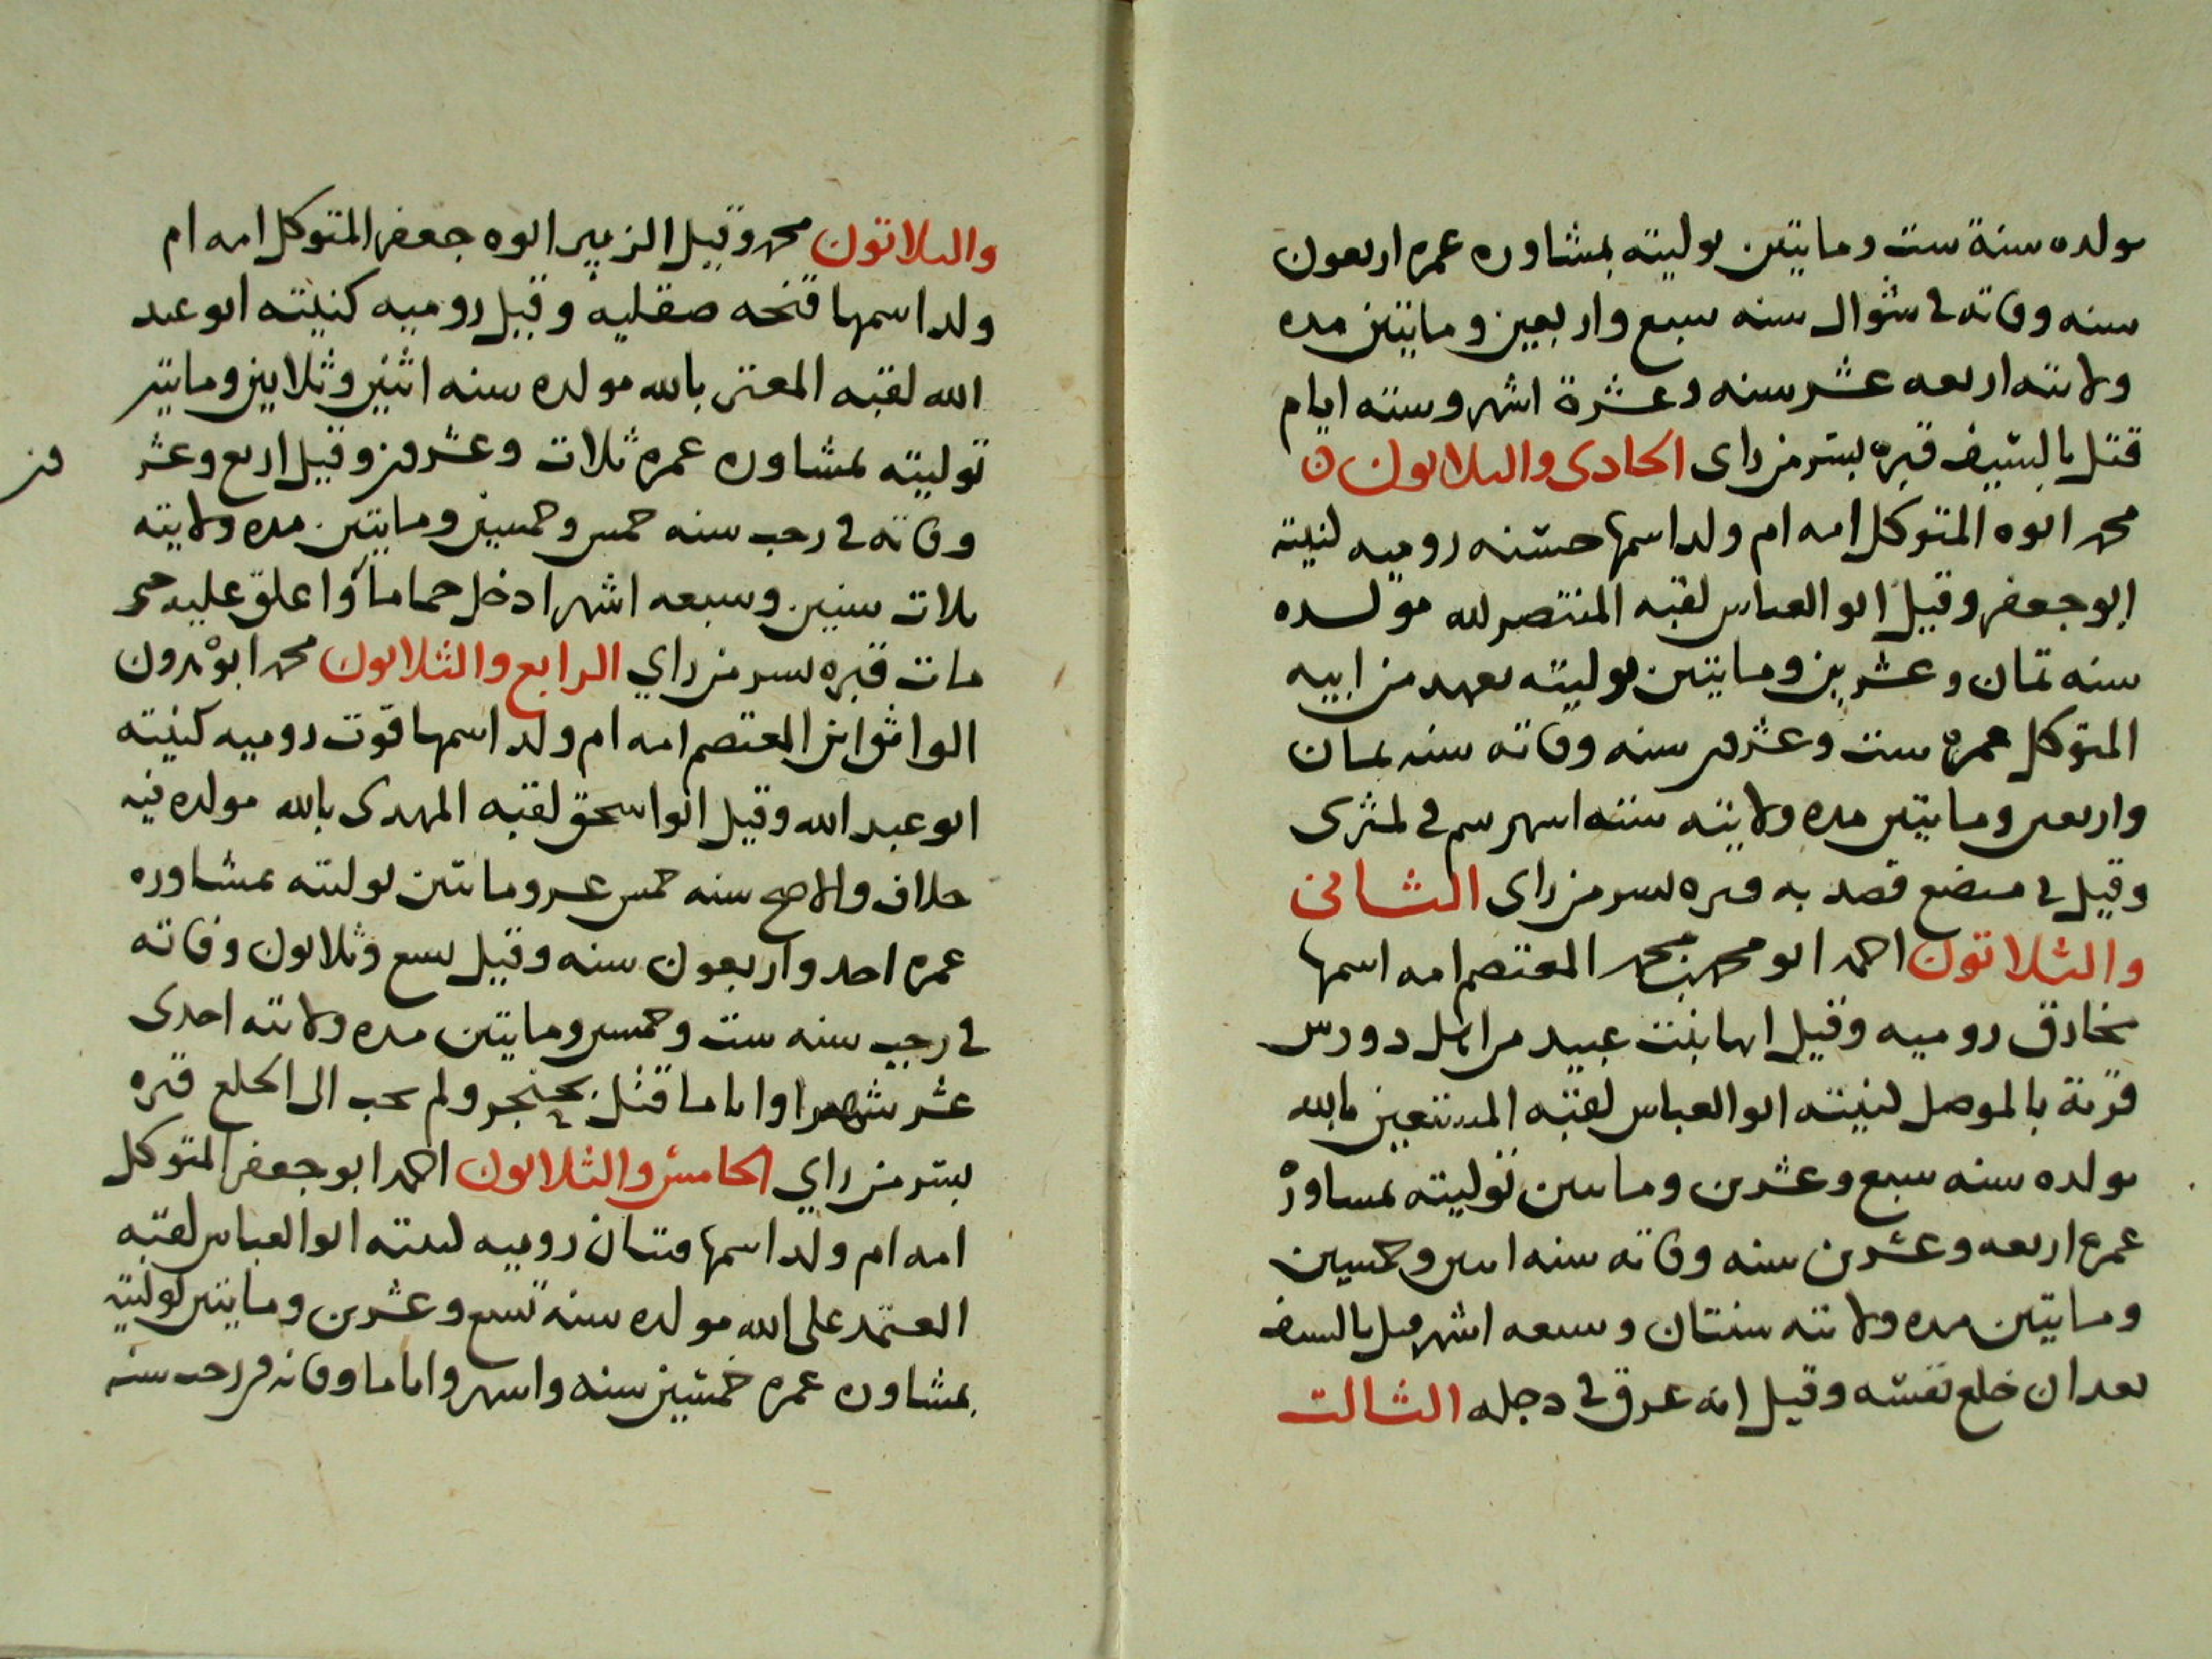 مولده سنة ست ومايتين توليته بمشاوره عمره اربعون
سنه وفاته في شوال سنه سبع واربعين ومايتين مده
ولايته اربعه عشر سنه وعشرة اشهر وسته ايام
قتل بالسيف قبره بسر من راى الحادى والثلاثون
محمد ابوه المتوكل امه ام ولد اسمها حسنه روميه كنيته
ابو جعفر وقيل ابو العباس لقبه المنتصر لله مولده
سنه ثمان وعشرين ومايتين توليته بعهد من ابيه
المتوكل عمره ست وعشرين سنه وفاته سنه ثمان
واربعين ومايتين مده ولايته سته اشهر سم في كمثرى
وقيل في مبضع فصد به قبره بسر من راى الثانى
والثلاثون احمد ابو محمد بن محمد المعتصم امه اسمها
مخارق روميه وقيل انها بنت عبيد من اهل دورس
قرية بالموصل كنيته ابو العباس لقبه المستعين بالله
مولده سنه سبع وعشرين ومايتين توليته بمشاوره
عمره اربعه وعشرين سنه وفاته سنه اثنين وخمسين
ومايتين مده ولايته سنتان وسبعه اشهر قتل بالسيف
بعد ان خلع نفسه وقيل انه غرق في دجله الثالث
والثلاثون محمد وقيل الزبير ابوه جعفر المتوكل امه ام
ولد اسمها فتحه صقليه وقيل روميه كنيته ابو عبد
الله لقبه المعتز بالله مولده سنه اثنين وثلاثين ومايتين
توليته بمشاوره عمره ثلاث وعشرين وقيل اربع وعشرين
وفاته في رجب سنه خمس وخمسين ومايتين مده ولايته
ثلاث سنين وسبعه اشهر ادخل حماما واغلق عليه حتى
مات قبره بسر من راي الرابع والثلاثون محمد ابو هرون
الواثق ابن المعتصم امه ام ولد اسمها قوت روميه كنيته
ابو عبد الله وقيل ابو اسحق لقبه المهدى بالله مولده فيه
خلاف والاصح سنه خمس عشر ومايتين توليته بمشاوره
عمره احد واربعون سنه وقيل سبع وثلاثون وفاته
في رجب سنه ست وخمسين ومايتين مده ولايته احدى
عشر شهرا واياما قتل بخنجر ولم يجب الى الخلع قبره
بسر من راي الخامس والثلاثون احمد ابو جعفر المتوكل
امه ام ولد اسمها فتيان روميه كنيته ابو العباس لقبه
المعتمد على الله مولده سنه تسع وعشرين ومايتين توليته
بمشاوره عمره خمسين سنه واشهر واياما وفاته في رجب سنه